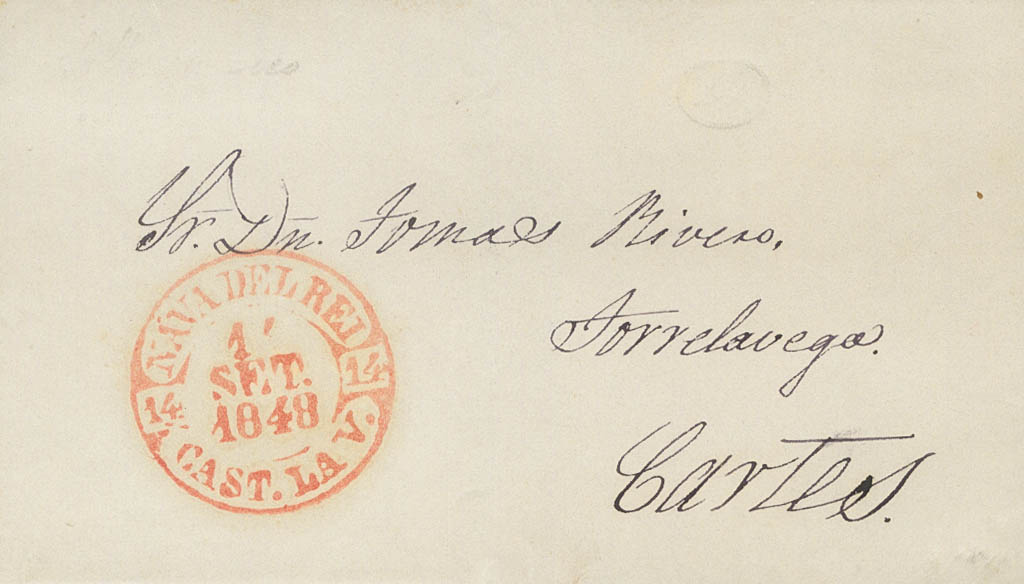 Sr. Dn. Tomas Rivero,
Torrelavega.
Cartes.
NAVA DEL REI
14 14
SET.
1848
CAST. LA V.